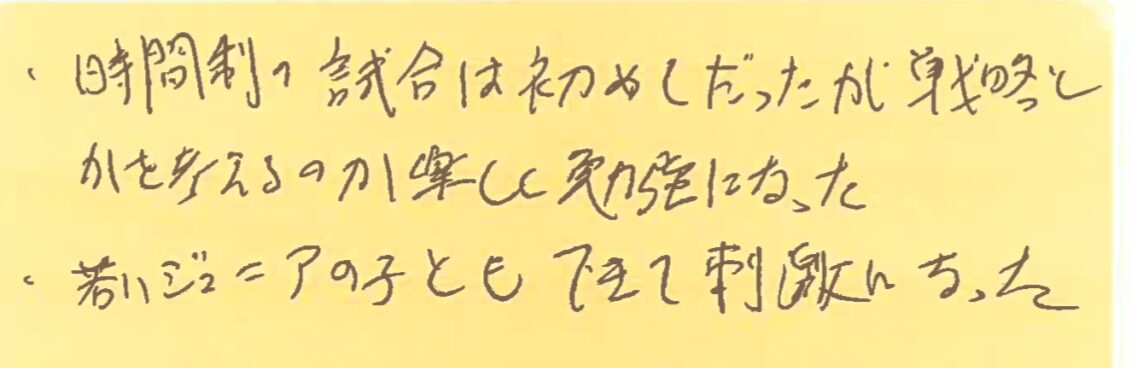 ・時間制の試合は初めてだったが戦略と
かを考えるのが楽しく勉強になった
・若いジュニアの子ともできて刺激になった